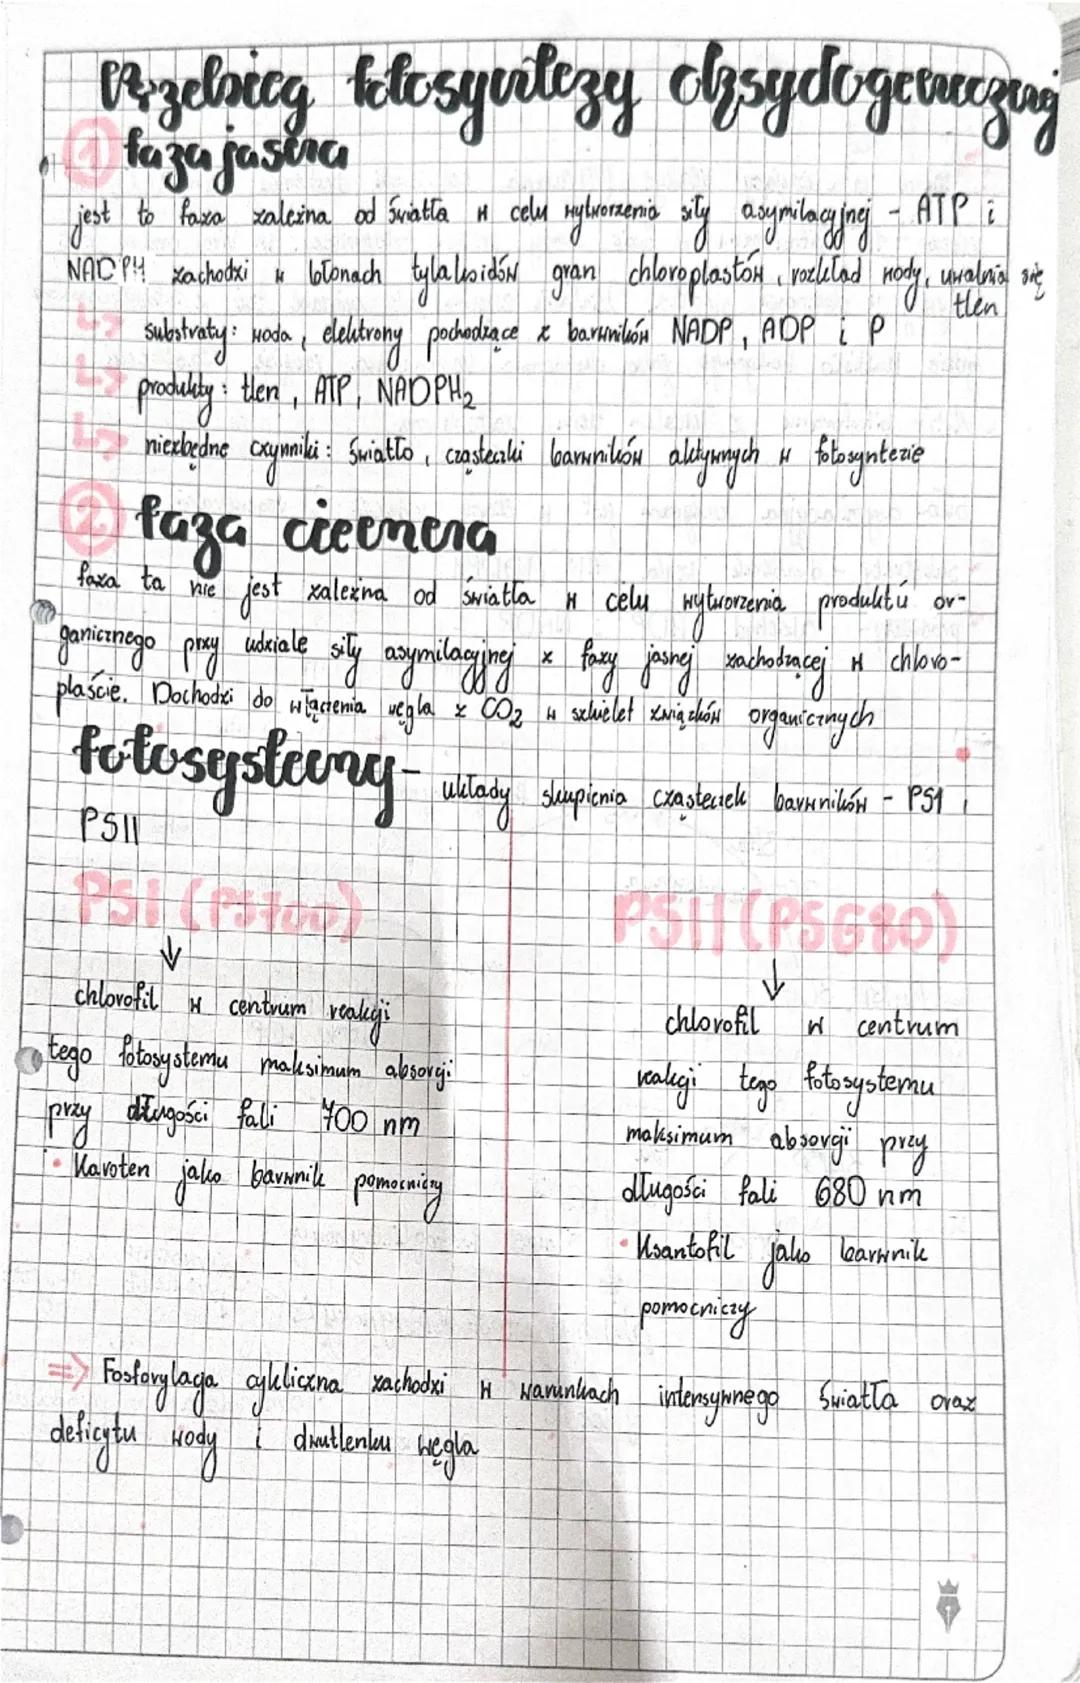 Przebieg fotosyntezy oksydogenicznej
1 faza jasna
jest to faza zależna od światła w celu wytworzenia siły asymilacyjnej - ATP i
NADPH zachodzi w błonach tylakoidów gran chloroplastów, rozkład wody, uwalnia się
tlen
↳ substraty: woda, elektrony pochodzące z barwników NADP, ADP i P
↳ produkty: tlen, ATP, NADPH₂
↳ niezbędne czynniki: światło, cząsteczki barwników aktywnych w fotosyntezie
2 faza ciemna
faza ta nie jest zależna od światła w celu wytworzenia produktu or-
ganicznego przy udziale siły asymilacyjnej z fazy jasnej zachodzącej w chloro-
plaście. Dochodzi do włączenia węgla z CO₂ w szkielet związków organicznych
fotosystemy - układy skupienia cząsteczek barwników - PS1 i
PSII
PSI (PS700)
↓
chlorofil w centrum reakcji
tego fotosystemu maksimum absorcji
przy długości fali 700 nm
• Karoten jako barwnik pomocniczy
PSII (PS680)
↓
chlorofil w centrum
reakcji tego fotosystemu
maksimum absorcji przy
długości fali 680 nm
• Ksantofil jako barwnik
pomocniczy
=> Fosforylacja cykliczna zachodzi w warunkach intensywnego światła oraz
deficytu wody i dwutlenku węgla